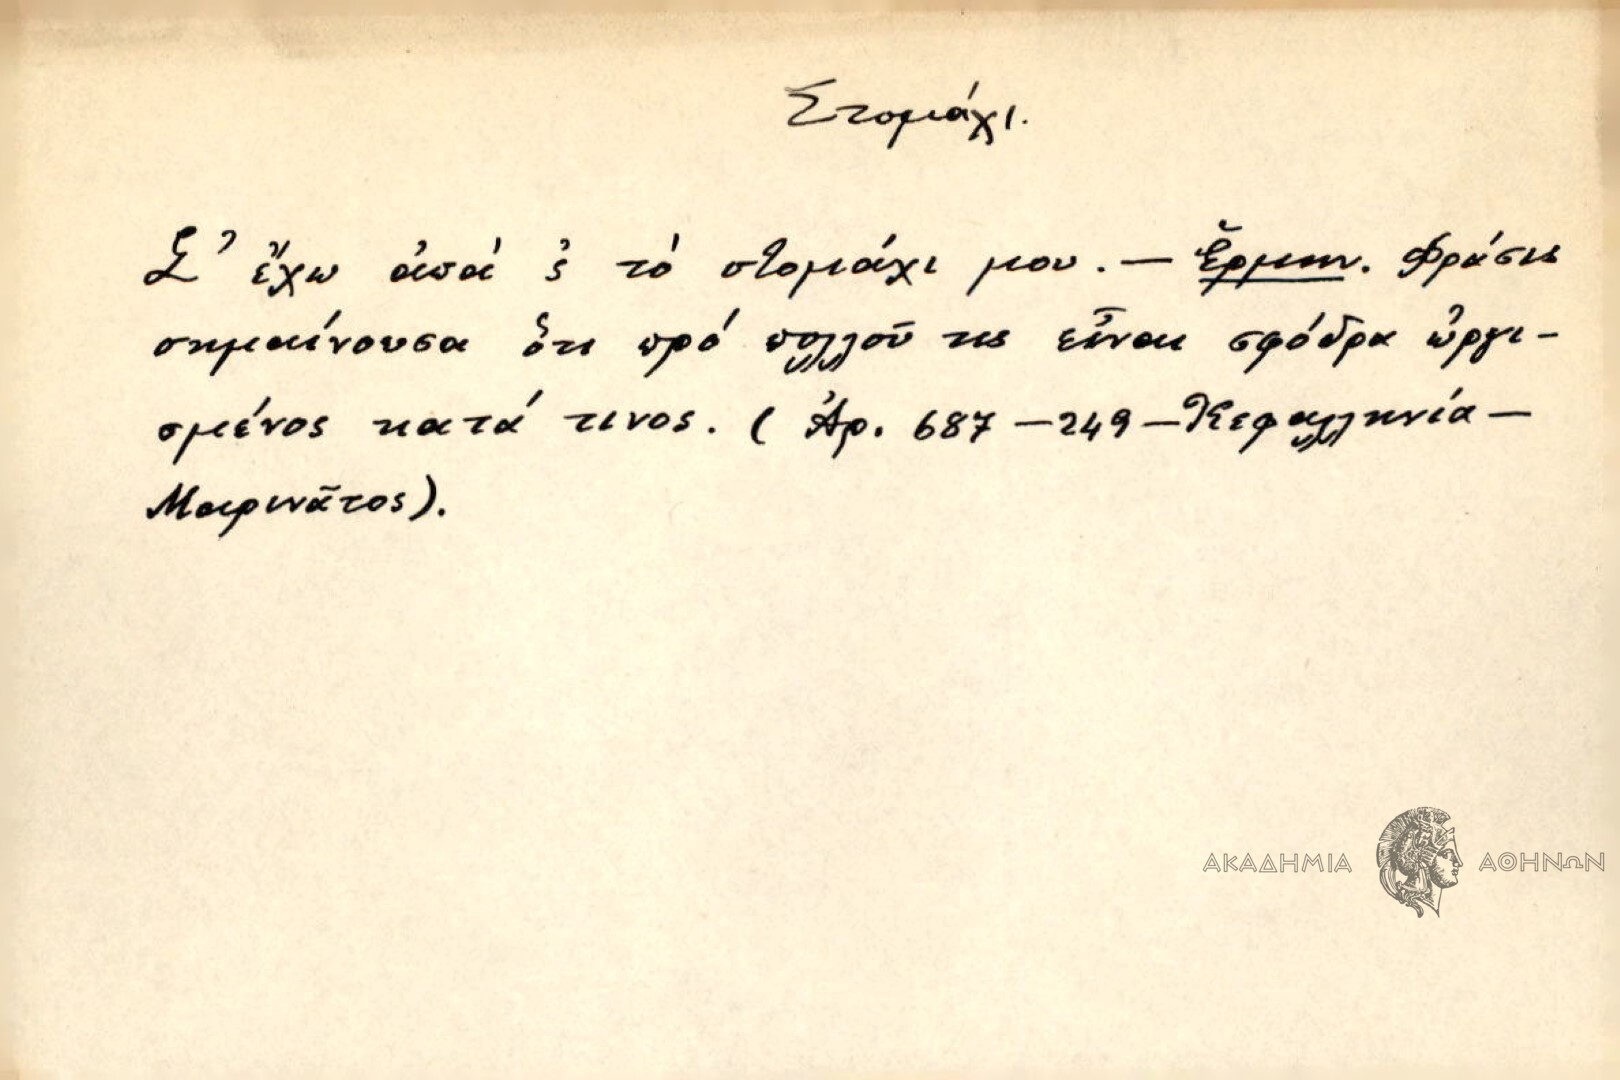 Στομάχι.
Σ' ἔχω ἀπά 'ς τό στομάχι μου. — Ἑρμην. Φράσις
σημαίνουσα ὅτι πρό πολλοῦ τις εἶναι σφόδρα ὠργι-
σμένος κατά τινος. (Ἀρ. 687 — 249 — Κεφαλληνία —
Μαρινᾶτος).
ΑΚΑΔΗΜΙΑ ΑΘΗΝΩΝ